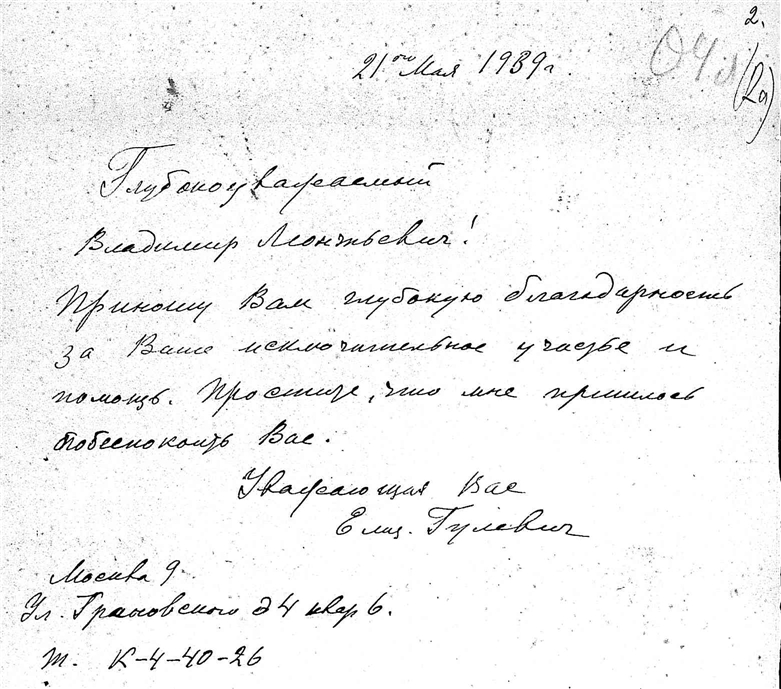 2.
21го Мая 1939г.
Глубокоуважаемый
Владимир Леонтьевич!
Приношу Вам глубокую благодарность
за Ваше исключительное участье и
помощь. Простите, что мне пришлось
побеспокоить Вас.
Уважающая Вас
Елиз. Гулевич
Москва 9
Ул. Грановского д 4 квар 6.
т. К-4-40-26